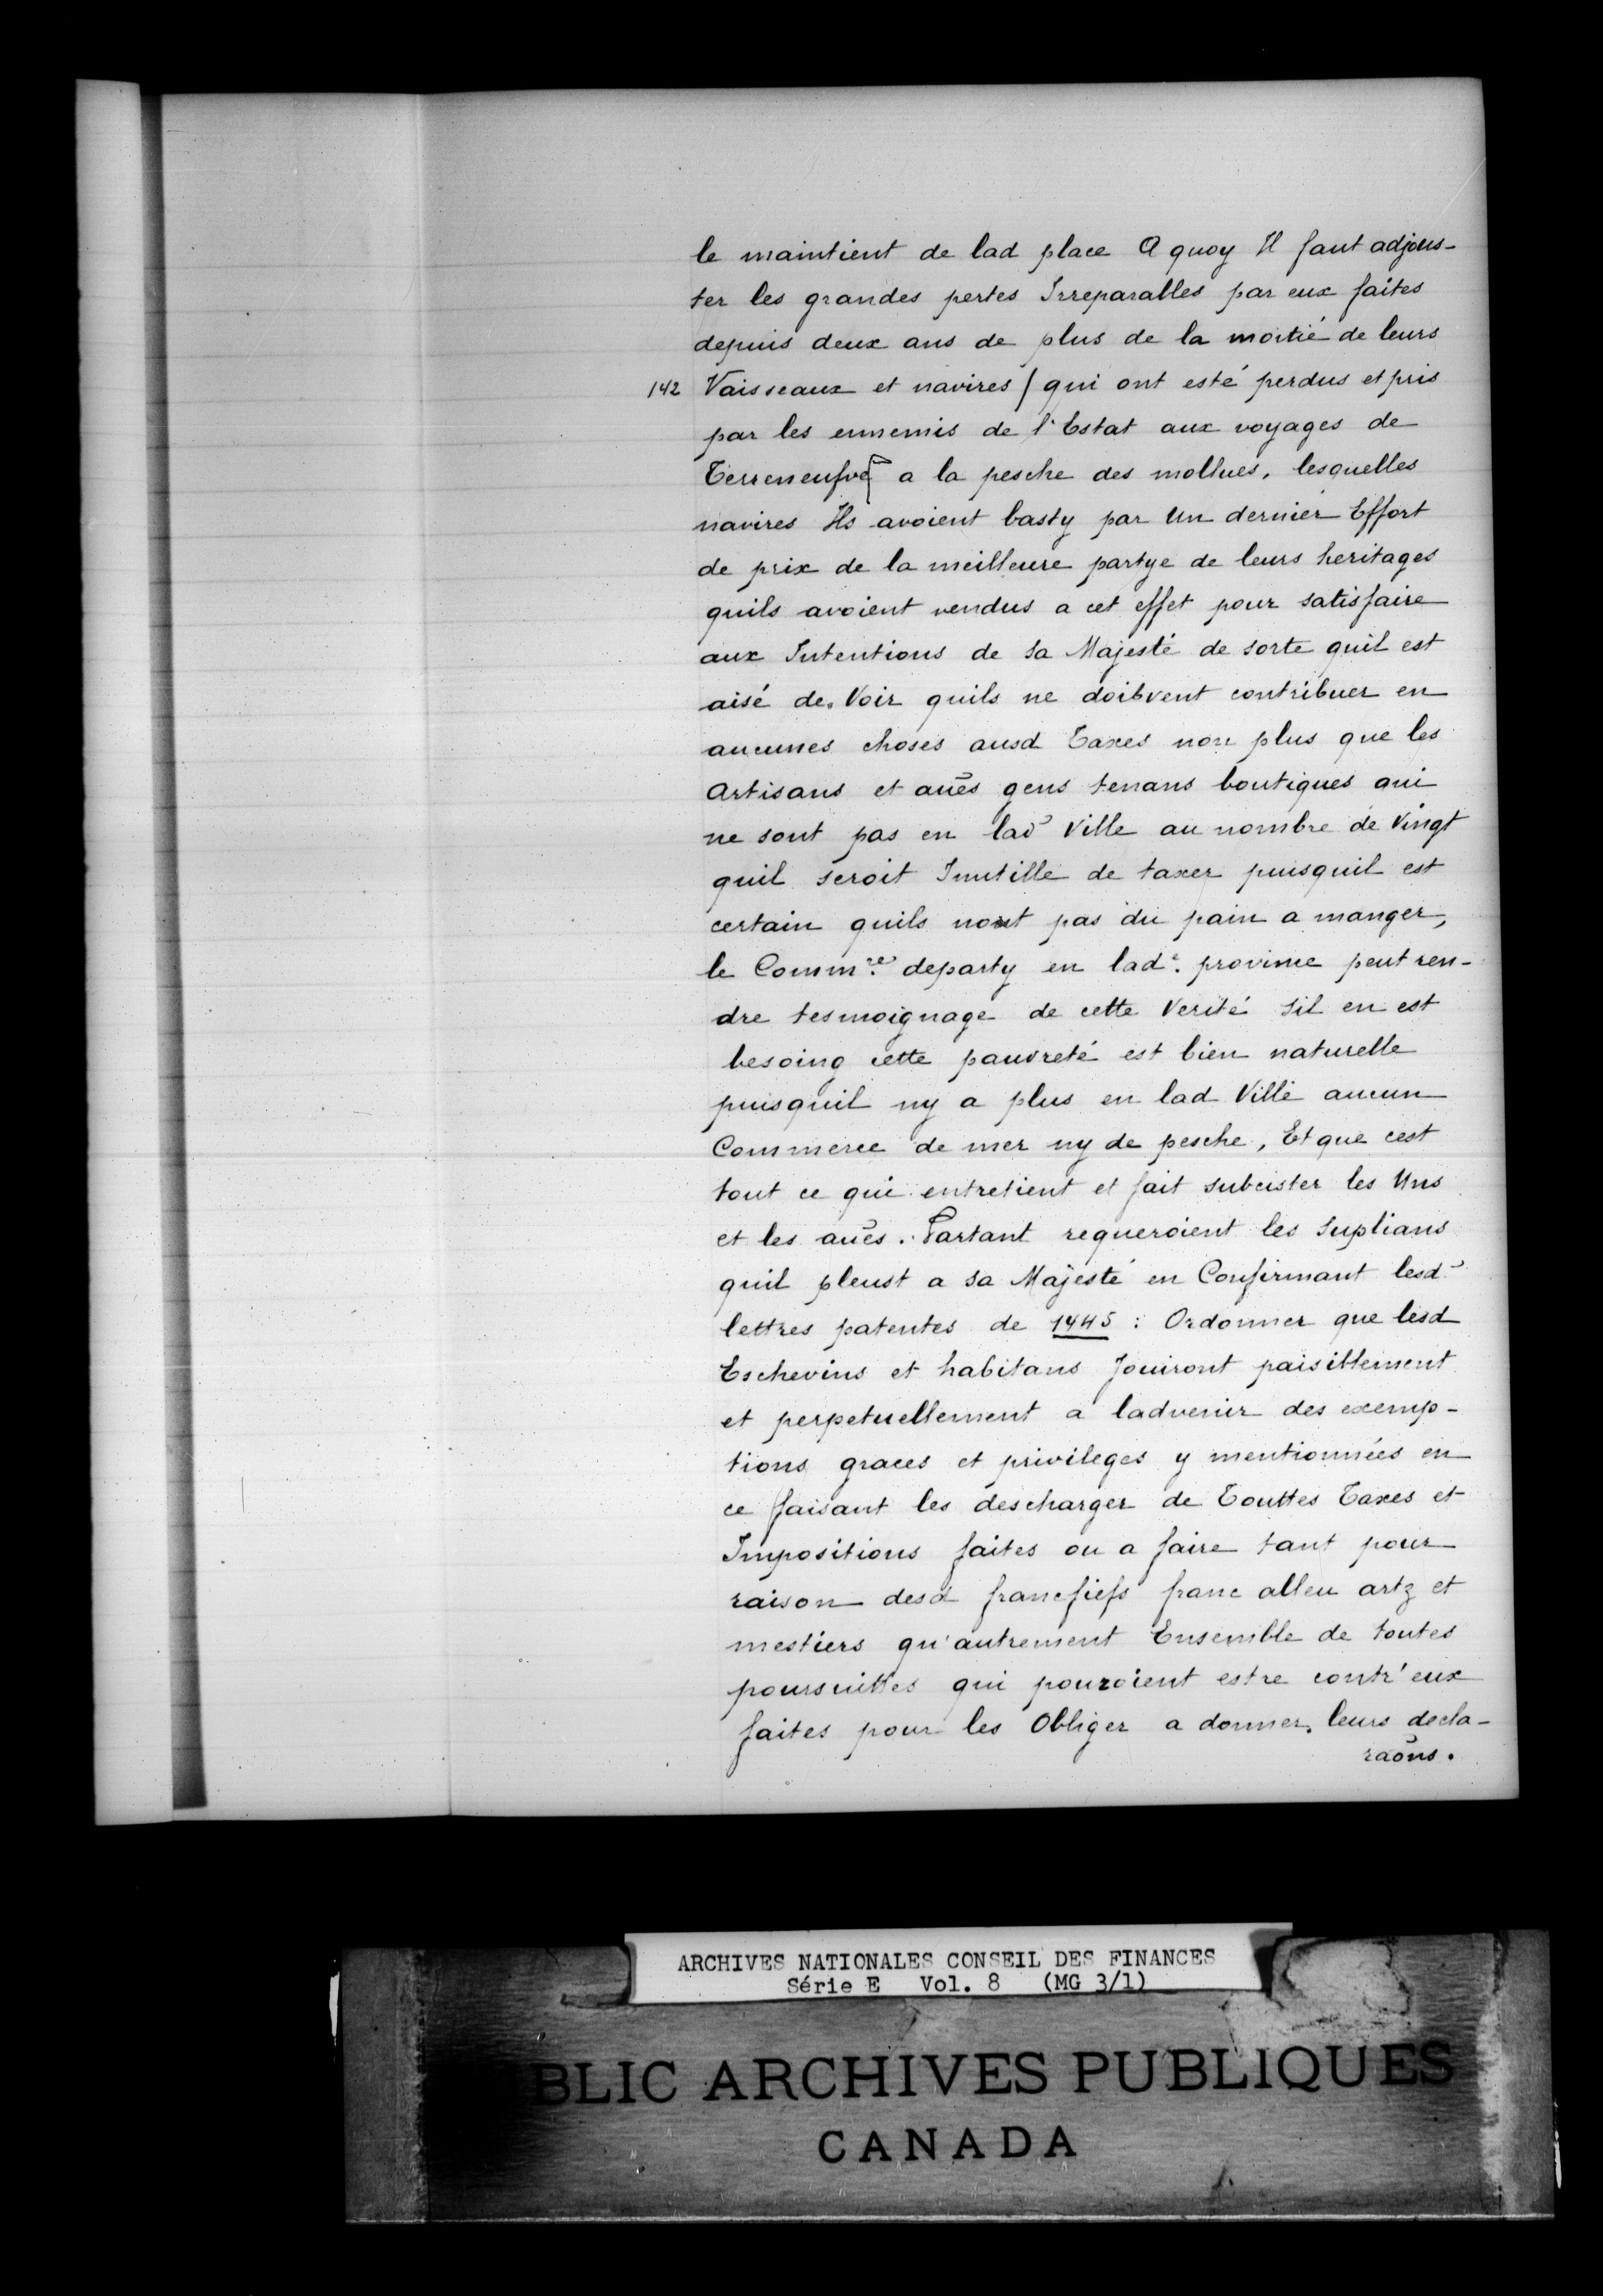 le maintient de lad place A quoy Il faut adjous-
ter les grandes pertes Irreparables par eux faites
depuis deux ans de plus de la moitié de leurs
142 Vaisseaux et navires / qui ont esté perdus et pris
par les ennemis de l'Estat aux voyages de
Terreneufve a la pesche des mollues, lesquelles
navires Ils avoient basty par Un dernier Effort
de prix de la meilleure partye de leurs heritages
quils avoient vendus a cet effet pour satisfaire
aux Intentions de sa Majesté de sorte quil est
aisé de Voir quils ne doibvent contribuer en
aucunes choses ausd Taxes non plus que les
Artisans et aūes gens tenans boutiques qui
ne sont pas en lad Ville au nombre de Vingt
quil seroit Inutille de taxer puisquil est
certain quils nont pas du pain a manger,
le Commre. departy en lade. province peut ren-
dre tesmoignage de cette Verité sil en est
besoing cette pauvreté est bien naturelle
puisquil ny a plus en lad Ville aucun
Commerce de mer ny de pesche, Et que cest
tout ce qui entretient et fait subcister les Uns
et les aūes. Partant requeroient les suplians
quil pleust a sa Majesté en Confirmant lesd
lettres patentes de 1445 : Ordonner que lesd
Eschevins et habitans Jouiront paisiblement
et perpetuellement a ladvenir des exemp-
tions graces et privileges y mentionnées en
ce faisant les descharger de Touttes Taxes et
Impositions faites ou a faire tant pour
raison desd francfiefs franc alleu artz et
mestiers qu'autrement Ensemble de toutes
poursuittes qui pouroient estre contr'eux
faites pour les Obliger a donner leurs decla-
raōns.
ARCHIVES NATIONALES CONSEIL DES FINANCES
Série E Vol. 8 (MG 3/1)
BLIC ARCHIVES PUBLIQUES
CANADA